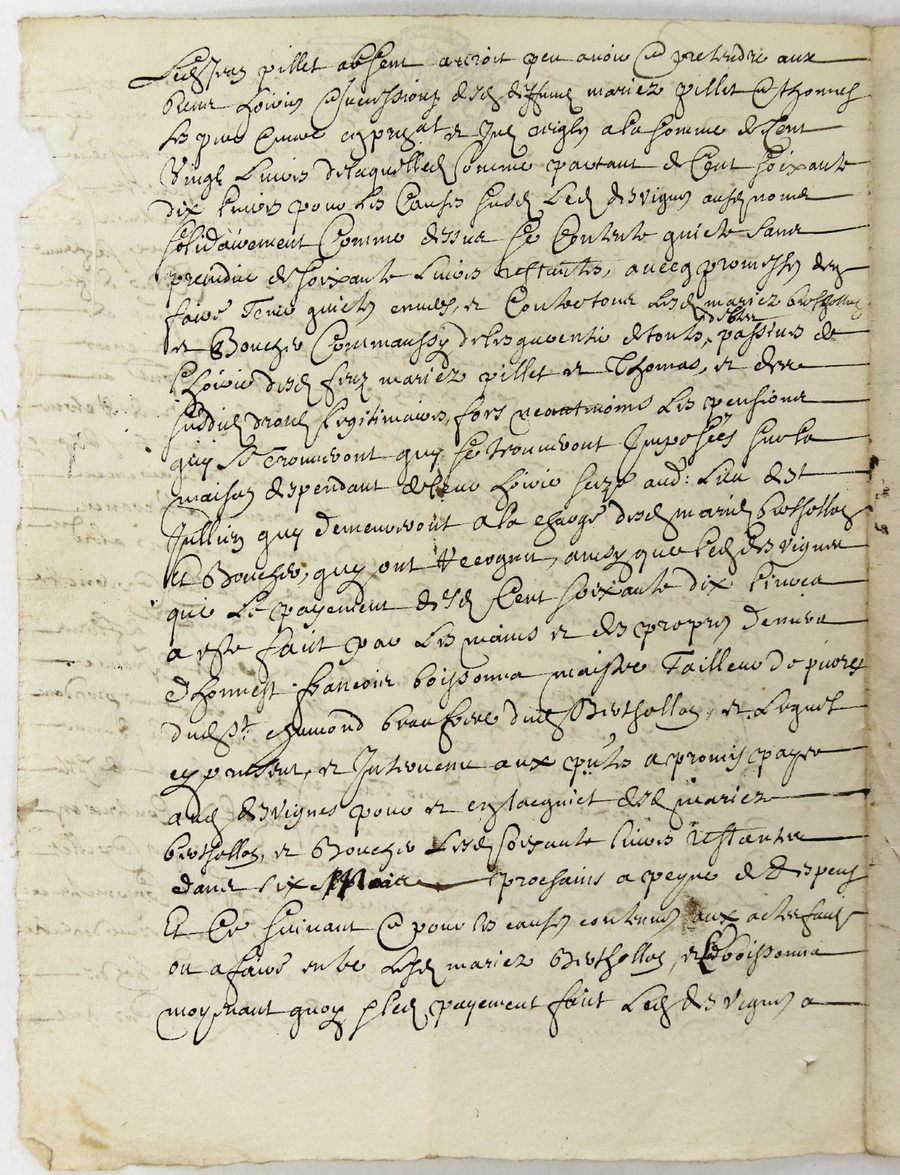 Led Jean pillet absent auroit peu avoir et pretendre aux
biens hoirie successions desd deffunts mariez pillet et thomas
les pnts a la somme de Cent
Vingt Livres de laquelled somme partant de Cent soixante
dix livres pour les causes susd Led desvignes ausd noms
solidairement Comme dessus se Contente quitte sans
prendre de soixante Livres restantes, avecq promesses de
faire Tenir quictes envers, et Contre tous Lesd mariez berthollas
et Bouchier Comm aussy de les guerentir de touts debtes passives de
L'hoirie desd feuz mariez pillet et Thomas, et
susd droits Legitimaires, fors neantmoins Les pensions
quy se Trouveront quy se trouveront Imposées sur la
maison dependant de lad hoirie size aud: Lieu de St
Jullien quy demeureront a la charge desd mariés berthollas
et Bouchier, quy ont recognu, ainsy que led desvignes
que Le payement desd Cent soixante dix livres
a esté faict par Les mains et des propres deniers
d'honnest françois boissonna maistre Tailleur de pierres
dud St. chamond beau frere dud Berthollas, et Lequel
cy present, et Intervenu aux pntes a promis payer
aud desvignes pour et en l'acquict desd mariez
berthollas, et Bouchier Lesd soixante livres restantes
dans six Mois prochains a peyne de despens
Et Ce suivant et pour les causes contenues aux actes faits
ou a faire entre Lesd mariez Berthollas, et led boissonna
moyenant quoy, et led payement faict Led desvignes a